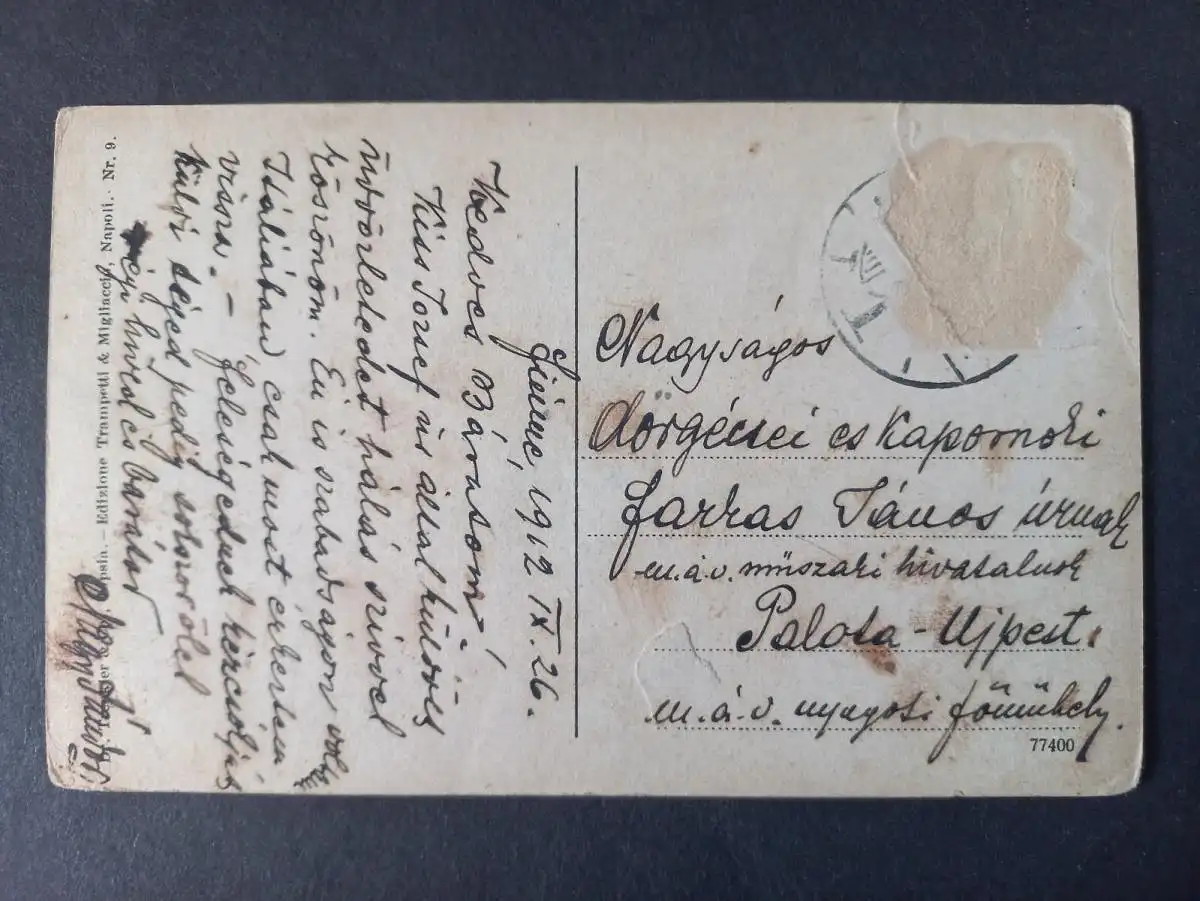 Fiume, 1912 IX. 26.
Kedves Bárátom!
Kiss József úr által küldött
üdvözletedet hálás szivvel
köszönöm. Én is szabadságon vol
Itáliában, csak most érkeztem
vissza. – Feleségednek kézcsókját
küldi téged pedig sokszor ölel
régi hived és barátod
Nagyságos
dörgicsei és kapornoki
Farkas János úrnak
m. á. v. műszaki hivatalnok
Palota-Ujpest.
m. á. v. nyugoti főműhely.
77400
Edizione Trampetti & Migliaccio, Napoli. Nr. 9.